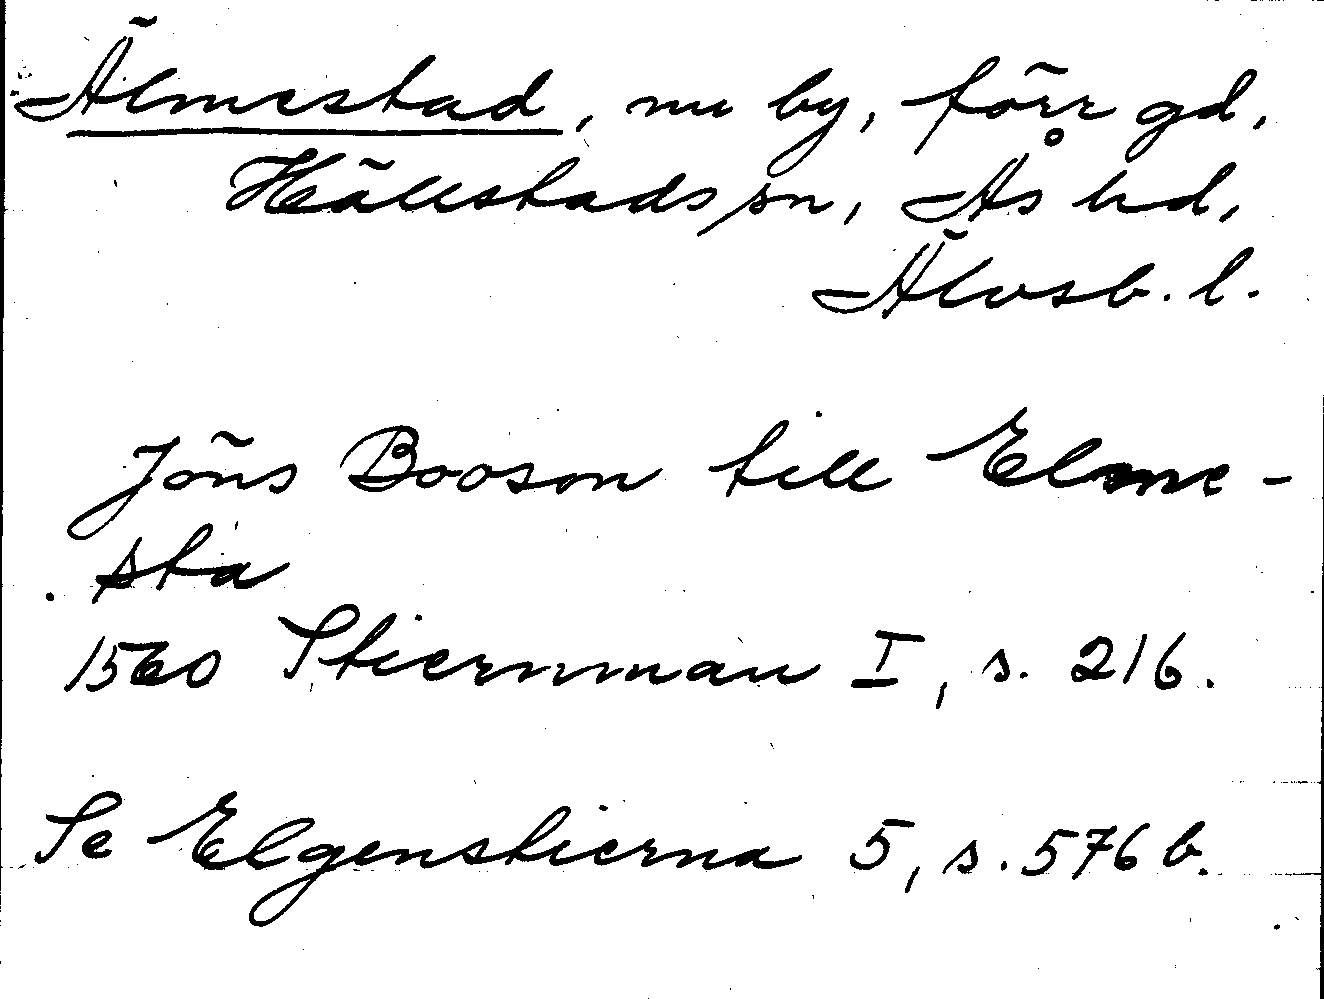 Älmestad, nu by, förr gd,
Hällstads sn, Ås hd,
Älvsb. l.
Jöns Booson till Elme-
sta
1560 Stiernman I, s. 216.
Se Elgenstierna 5, s. 576 b.